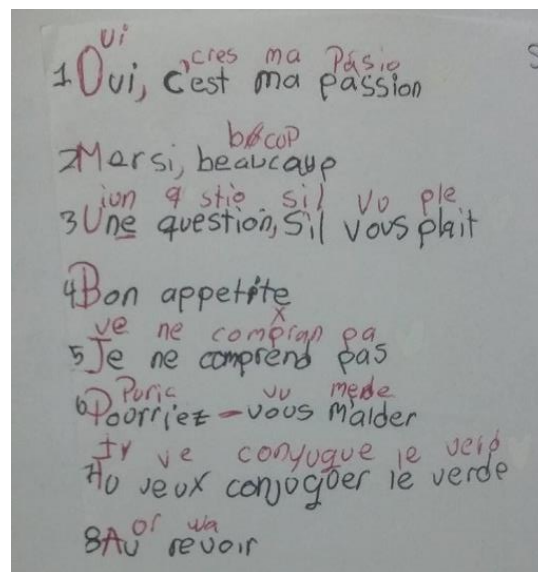 ui ,cres ma Pasio
1 Oui, c'est ma passion
bocop
2 Marsi, beaucaup
iun q stio sil vo ple
3 Une question, S'il vous plait
4 Bon appetite
ve ne compran pa
5 Je ne comprend pas
Puric vu mede
6 Pourriez-vous m'alder
Iv ve conyugue le verb
Hu veux conjogüer le verde
or wa
8 Au revoir